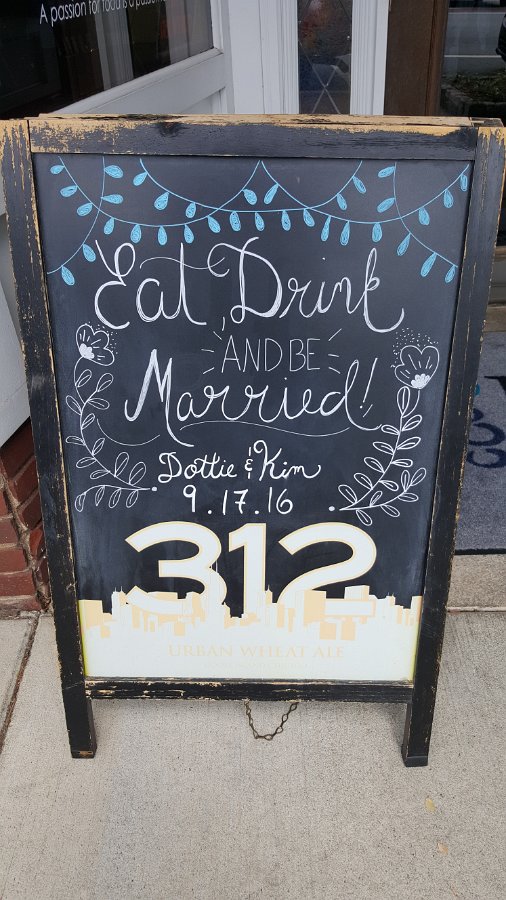 A passion for food is a passion
Eat, Drink
AND BE
Married!
Dottie & Kim
9.17.16
312
URBAN WHEAT ALE